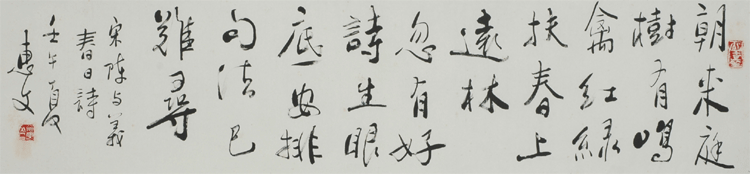 朝来庭
樹有鳴
禽红緑
扶春上
遠林
忽有好
詩生眼
底安排
句法已
難尋
宋陈与義
春日詩
壬午夏
惠文